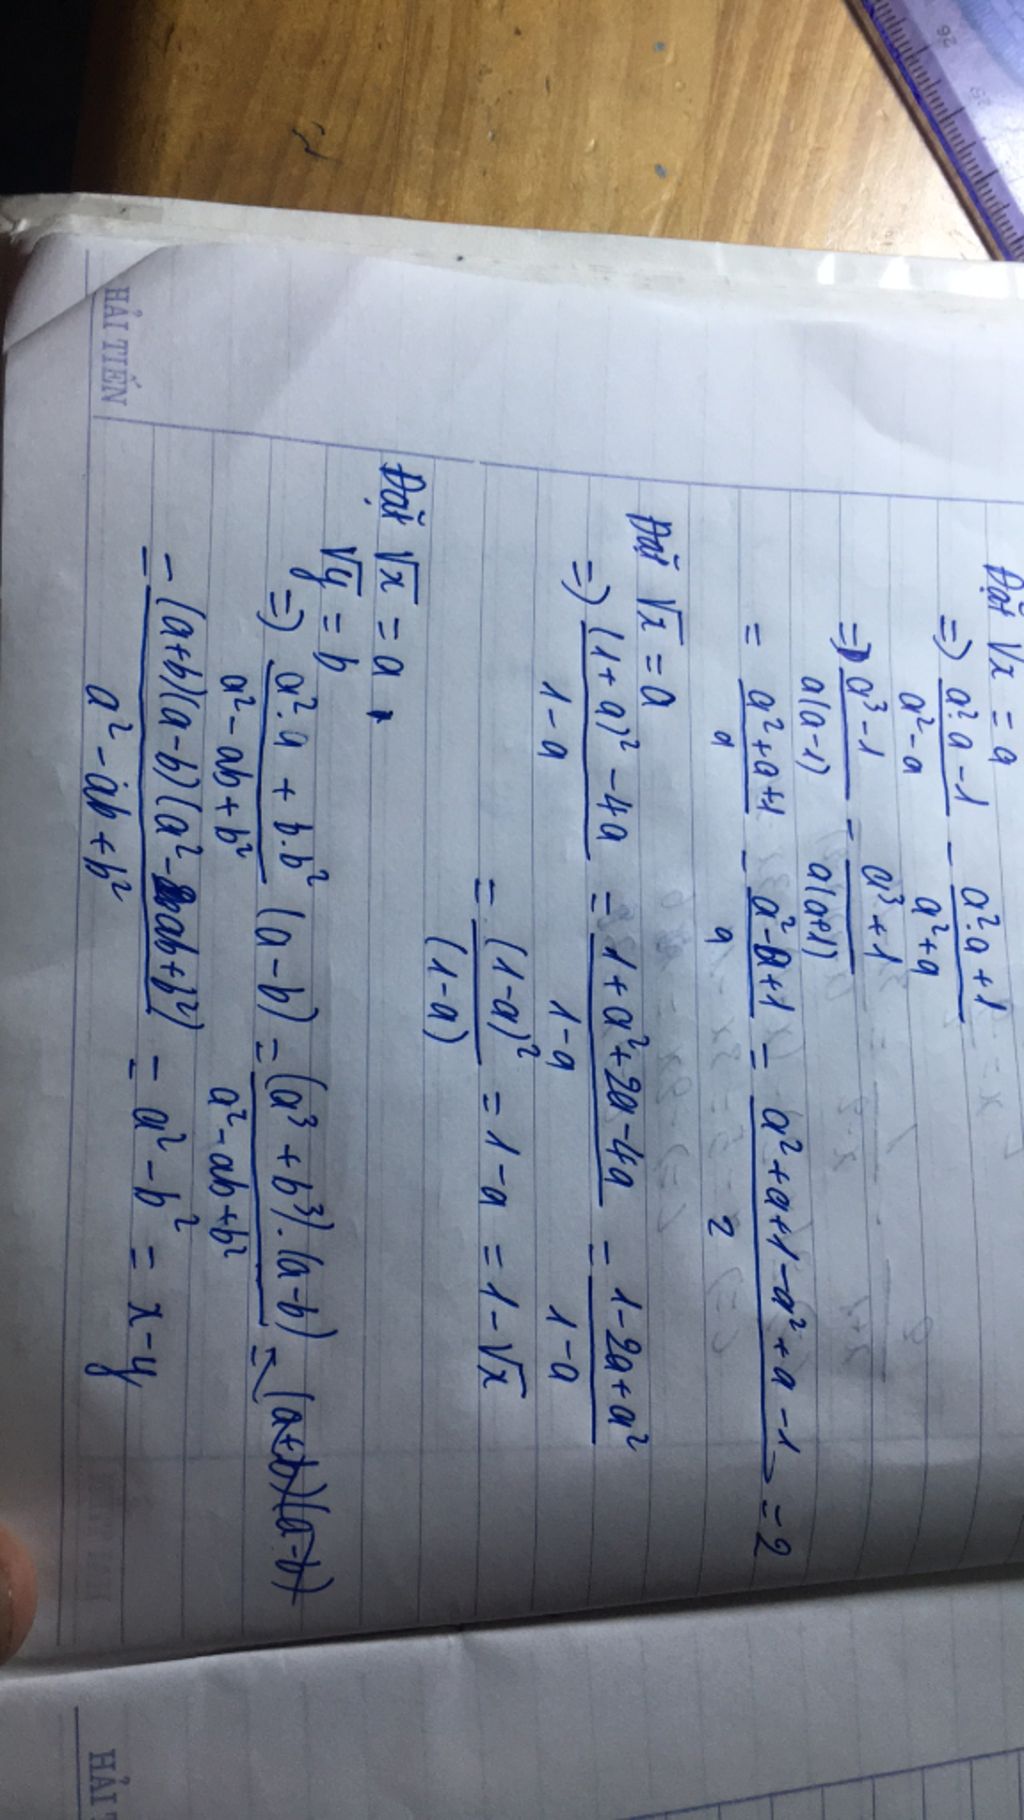 Đặt √x = a
=) a².a - 1 / a² - a - a².a + 1 / a² + a
=) a³ - 1 / a(a-1) - a³ + 1 / a(a+1)
= a² + a + 1 / a - a² - a + 1 / a = a² + a + 1 - a² + a - 1 / 2 = 2
Đặt √x = a
=) (1+a)² - 4a / 1 - a = 1 + a² + 2a - 4a / 1 - a = 1 - 2a + a² / 1 - a
= (1-a)² / (1-a) = 1 - a = 1 - √x
Đặt √x = a
√y = b
=) a².a + b.b² / a² - ab + b² (a-b) = (a³ + b³).(a-b) / a² - ab + b² = (a+b)(a-b)
= (a+b)(a-b)(a² - ab + b²) / a² - ab + b² = a² - b² = x - y
HẢI TIẾN
HẢI
26
25